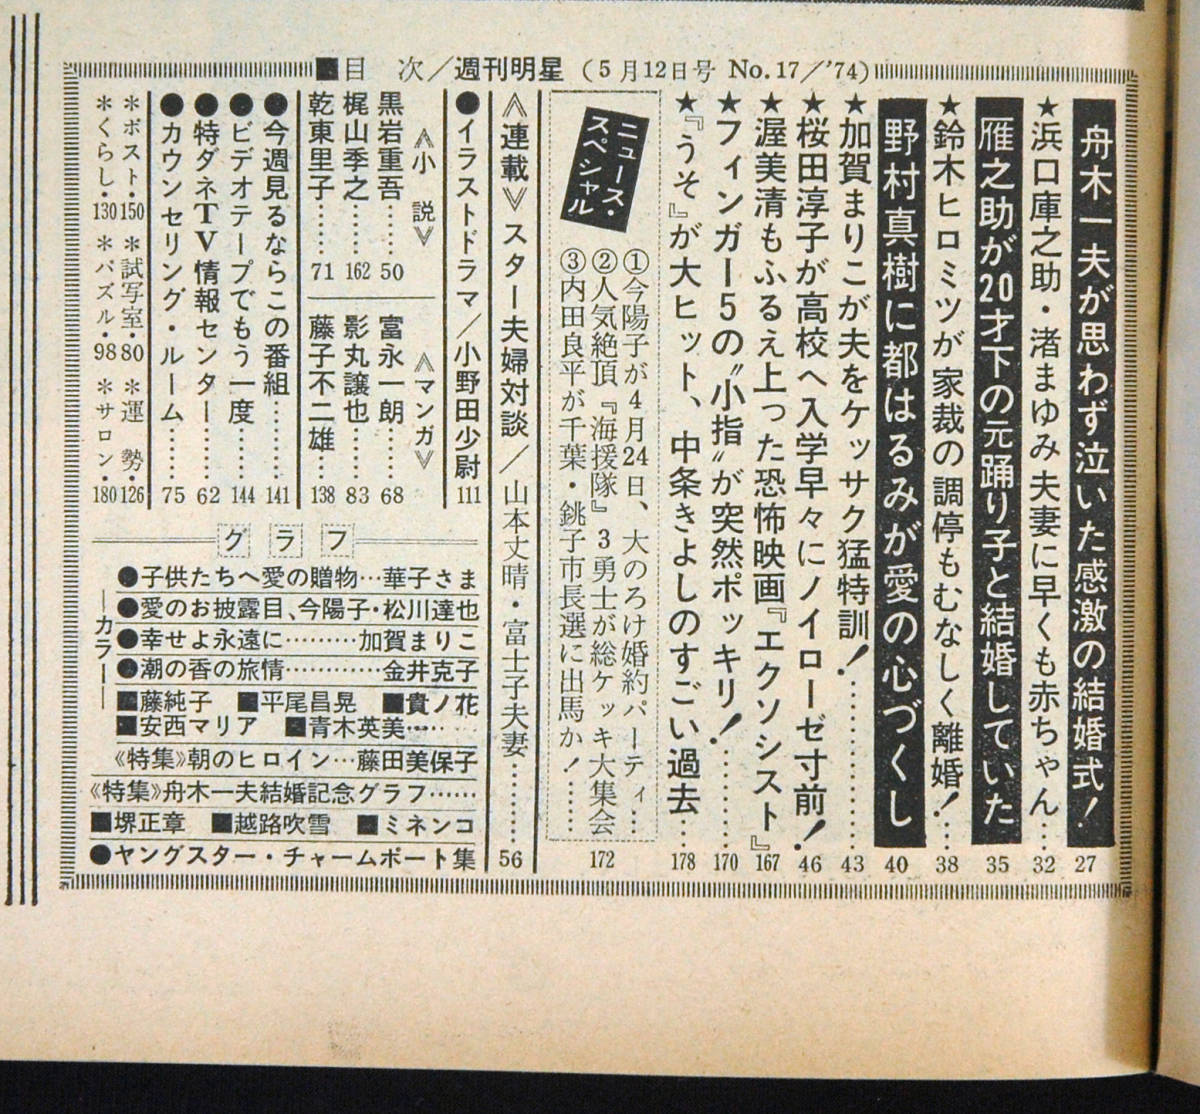 ■目　次／週刊明星（5月12日号 No.17／'74）
舟木一夫が思わず泣いた感激の結婚式！27
★浜口庫之助・渚まゆみ夫妻に早くも赤ちゃん…32
雁之助が20才下の元踊り子と結婚していた35
★鈴木ヒロミツが家裁の調停もむなしく離婚！38
野村真樹に都はるみが愛の心づくし40
★加賀まりこが夫をケッサク猛特訓！………43
★桜田淳子が高校へ入学早々にノイローゼ寸前！46
★渥美清もふるえ上った恐怖映画『エクソシスト』167
★フィンガー5の〝小指〟が突然ポッキリ！………170
★『うそ』が大ヒット、中条きよしのすごい過去…178
ニュース・スペシャル
①今陽子が4月24日、大のろけ婚約パーティ…
②人気絶頂『海援隊』3勇士が総ケッキ大集会
③内田良平が千葉・銚子市長選に出馬か！……
172
《連載》スター夫婦対談／山本丈晴・富士子夫妻……56
●イラストドラマ／小野田少尉111
《小　説》
黒岩重吾……50
梶山季之……162
乾東里子……71
《マンガ》
富永一朗……68
影丸譲也……83
藤子不二雄……138
●今週見るならこの番組……141
●ビデオテープでもう一度……144
●特ダネTV情報センター……62
●カウンセリング・ルーム……75
＊ポスト・150　＊試写室・80　＊運　勢・126
＊くらし・130　＊パズル・98　＊サロン・180
グラフ
カラー
●子供たちへ愛の贈物…華子さま
●愛のお披露目、今陽子・松川達也
●幸せよ永遠に………加賀まりこ
●潮の香の旅情…………金井克子
■藤純子　■平尾昌晃　■貴ノ花
■安西マリア　■青木英美……
《特集》朝のヒロイン…藤田美保子
《特集》舟木一夫結婚記念グラフ……
■堺正章　■越路吹雪　■ミネンコ
●ヤングスター・チャームポート集